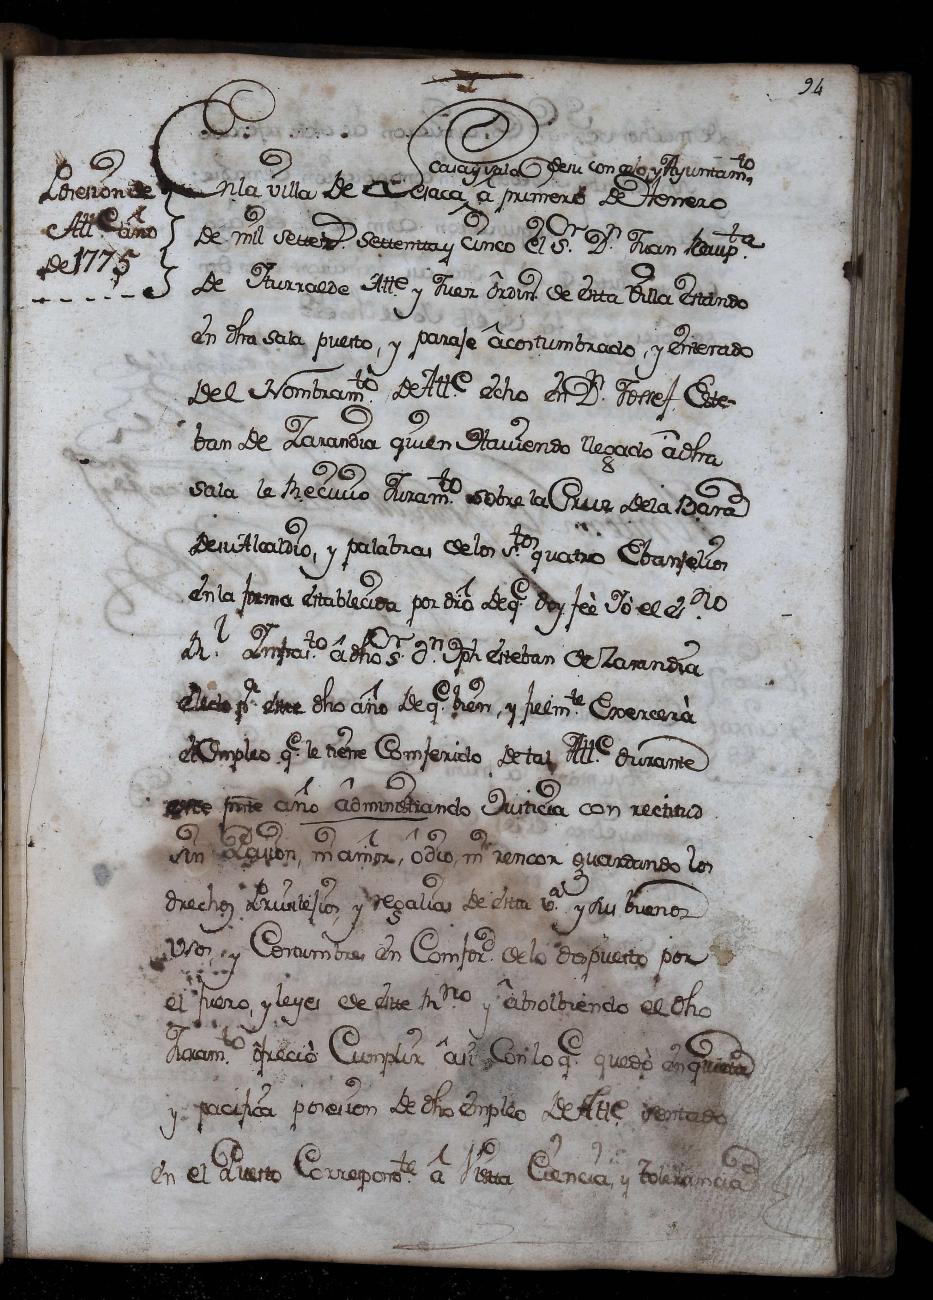 94
Posesion de
Alle. año
de 1775
casa y sala de su concejo, y Ayuntam.to
En la villa De Lesaca â primero De Henero
De mil settez.s settenta y cinco el S.or D.n Juan Baup.ta
De Yturralde Alle. y Juez ôrdin.o de êsta Villa êstando
ên dha sala puesto, y paraje âcostumbrado, y ênterado
Del Nombram.to De Alle. êcho ên D.n Josef Este-
ban De Zarandia quien Haviendo llegado âdha
sala le Recivio Juram.to sobre la Cruz de la Bara
De su Alcaldio, y palabras de los S.tos quatro Ebanjelios
ên la forma êstablecida por dro De q.e doy feè Yò el es.no
R.l Ynfras.to â dho S.or D.n Jph Esteban de Zarandia
electo p.a este dho año De q.e bien, y fielm.te Exercerà
el Empleo q.e le tiene Comferido De tal Alle. durante
este pnte año âdministrando Justicia con rectitud
sin Pasion, ni amor, ôdio, ni rencor guardando los
drechos Privilejios y regalias De êsta v.a y sus buenos
Vsos, y Costumbres ên Comfor.d de lo dispuesto por
el fuero, y leyes de êste R.no y âbsolbiendo el dho
Juram.to ofreciò Cumplir âsi Con lo q.e quedò ên quieta
y pacifica posesion De dho êmpleo De Alle. sentado
ên el Puesto Correspond.te â Vista Ciencia, y tolerancia